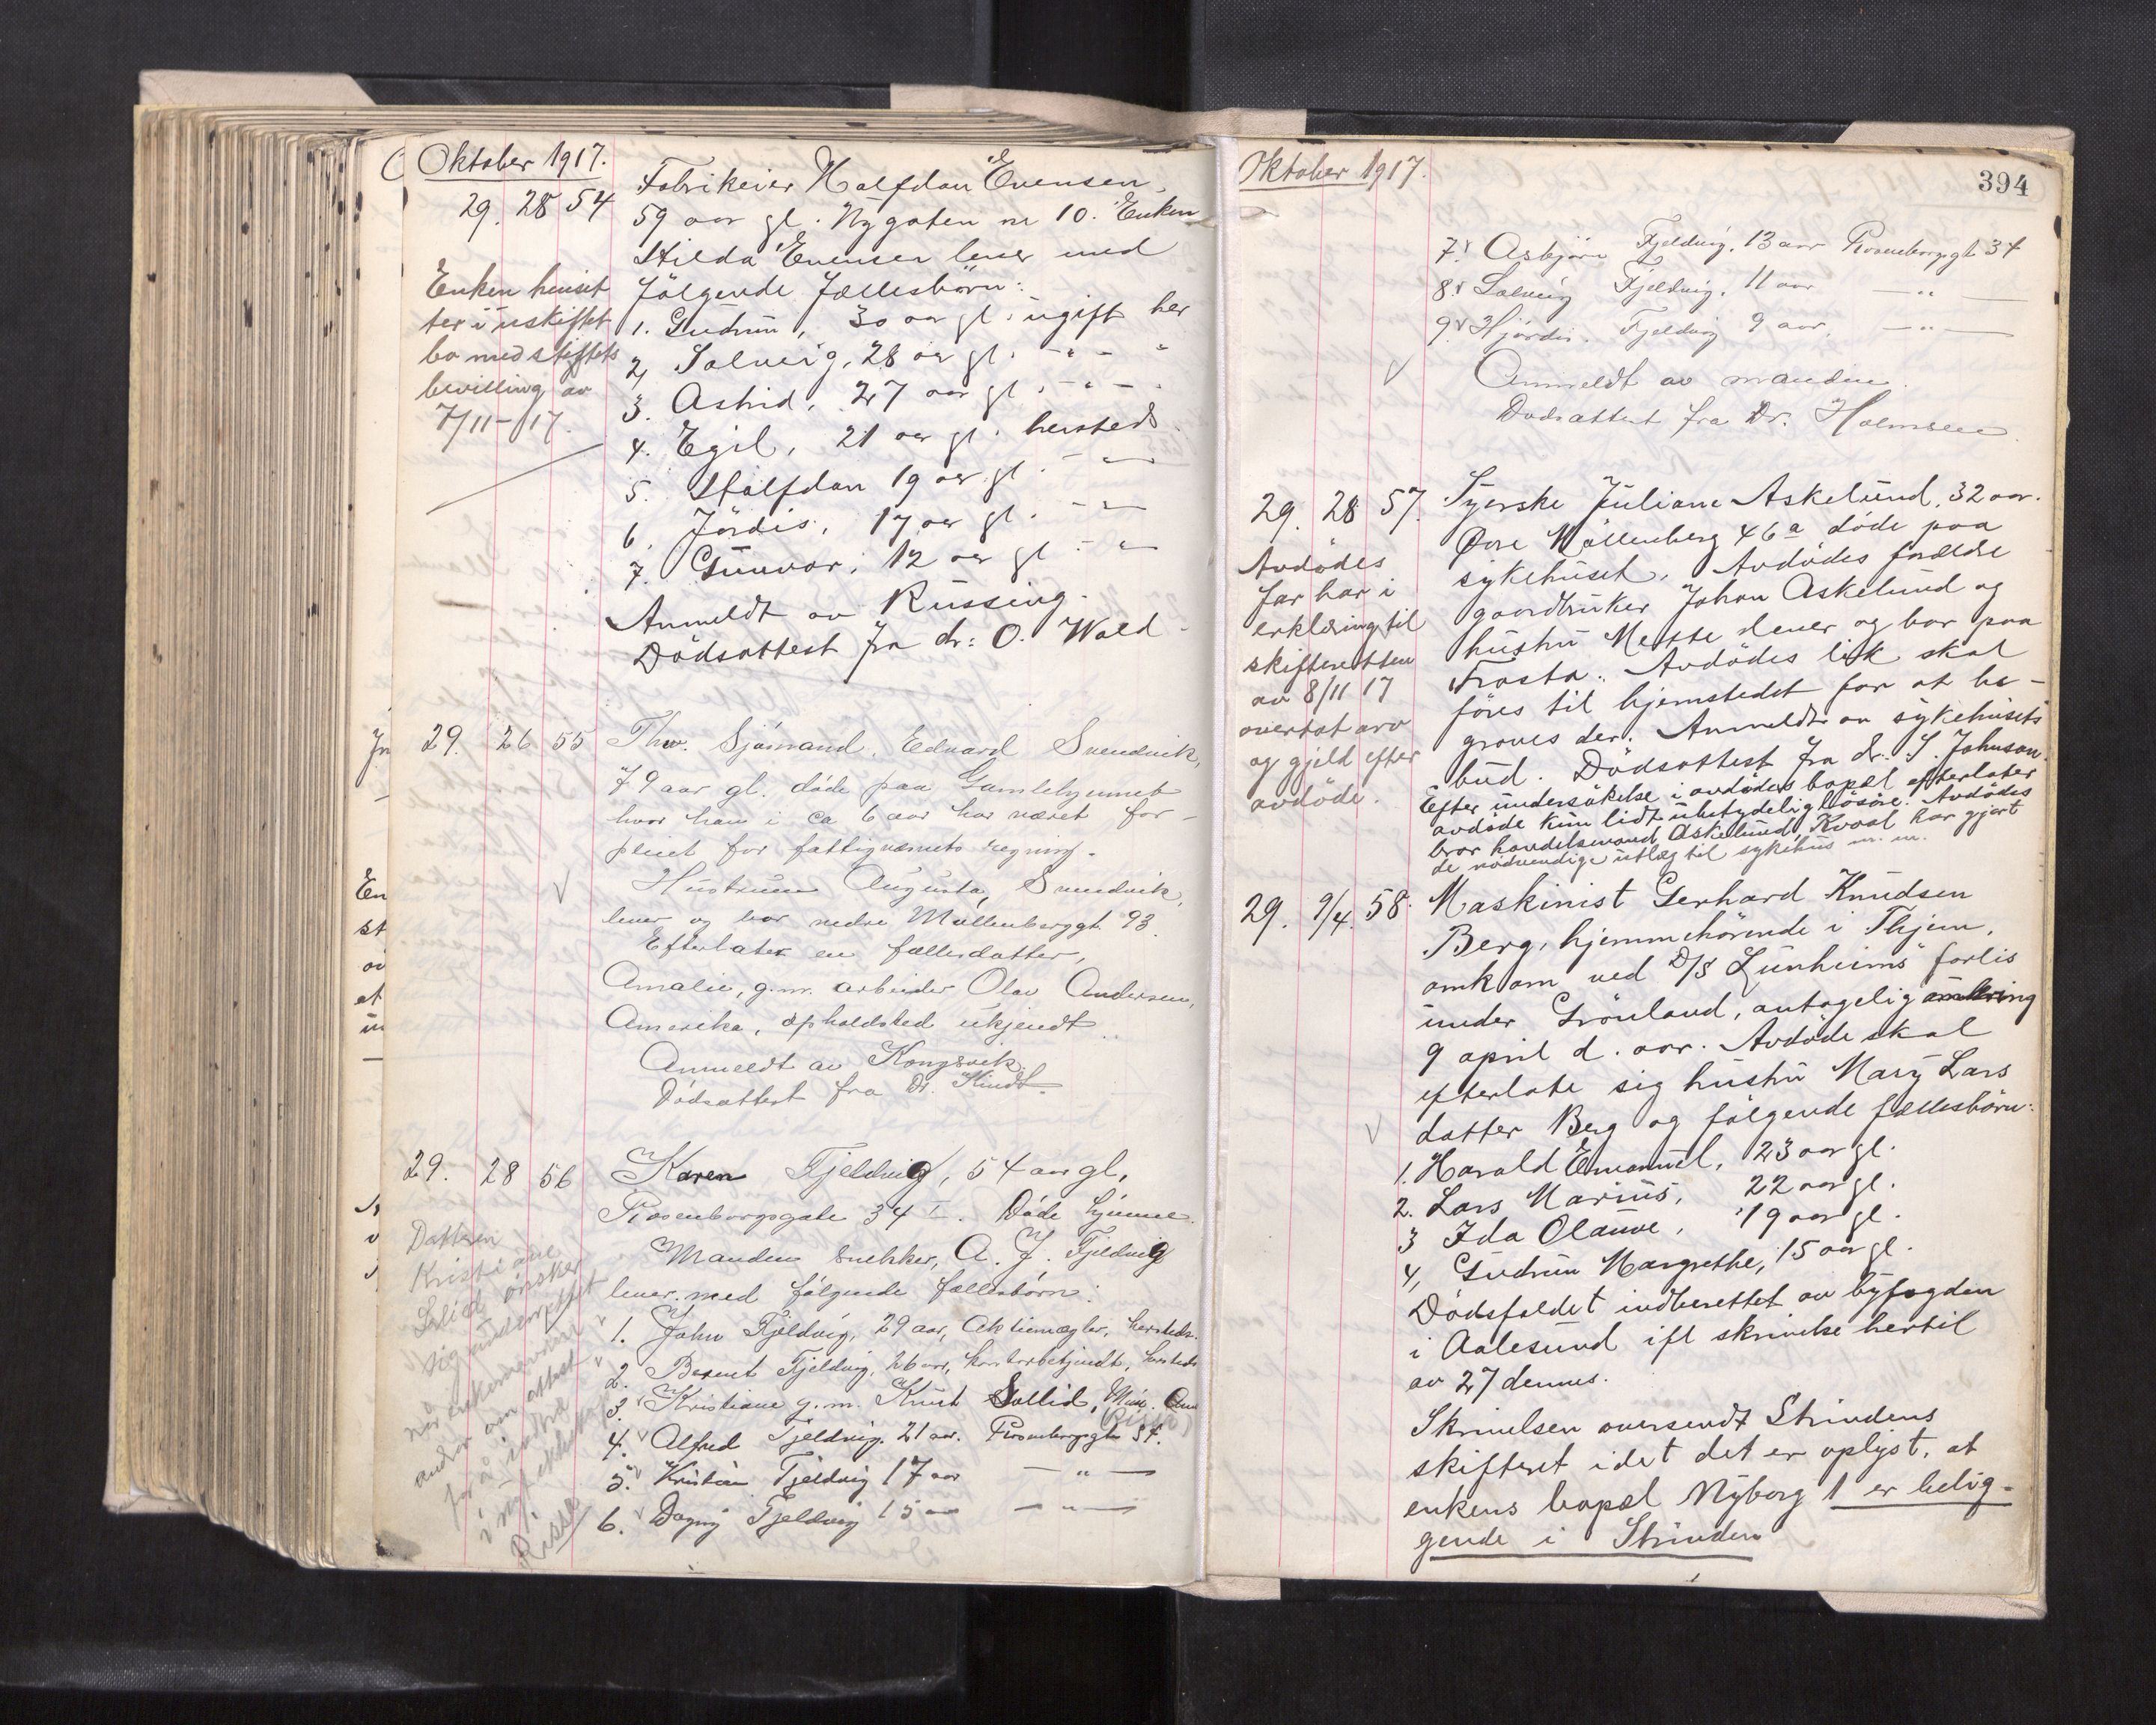 Oktober 1917.
29. 28 54 Fabrikeier Halfdan Evensen,
59 aar gl. Nygaten nr 10. Enken
Hilda Evensen lever med
følgende fællesbörn:
1. Gudrun, 30 aar gl. ugift her
2, Solveig, 28 aar gl. - " - "
3. Astrid, 27 aar gl. - " - "
4. Egil, 21 aar gl. hersteds
5. Halfdan 19 aar gl. - "
6. Jördis, 17 aar gl. - "
7. Gunvor, 12 aar gl. - "
Anmeldt av Russing.
Dödsattest fra dr: O. Wald
Enken henset
ter i uskiftet
bo med stiftets
bevilling av
7/11-17.
29. 26 55 Fhv. Sjømand, Edvard Svendvik,
79 aar gl. døde paa Gamlehjemmet
hvor han i ca 6 aar har været for-
pleiet for fattigvæsnets regning.
Hustruen Augusta, Svendvik,
lever og bor nedre Møllenberggt. 93.
Efterlater en fællesdatter,
Amalie, g.m. arbeider Olav Andersen,
Amerika, opholdsted ukjendt
Anmeldt av Kongsvik.
Dødsattest fra Dr. Kindt
29. 28 56 Karen Fjeldvig, 54 aar gl,
Rosenborgsgate 34 I. Døde hjemme.
Manden snekker, A. J. Fjeldvig
lever med følgende fællesbørn:
1. John Fjeldvig, 29 aar, Aktiemægler, hersteds.
2. Berent Fjeldvig, 26 aar, kontorbetjendt, hersteds
3. Kristiane g.m. Knut Sollid,
(Rissa)
4. Alfred Fjeldvig. 21 aar. Rosenborgsgt 34.
5. Kristian Fjeldvig 17 aar — " —
6. Dagny Fjeldvig 15 aar — " —
Datteren
Kristiane
Solid ønsker
sig underrettet
når enkemannen
andrar om attest
for å
i
Rissa
Oktober 1917.
394
7. Asbjørn Fjeldvig. 13 aar Rosenborggt 34
8. Solveig Fjeldvig. 11 aar — " —
9. Hjørdis. Fjeldvig 9 aar. — " —
Anmeldt av manden.
Dødsattest fra Dr. Holmsen.
29. 28 57. Syerske Juliane Askelund, 32 aar.
Övre Möllenberg 46a döde paa
sykehuset. Avdödes forældre
gaardbruker Johan Askelund og
hustru Mette lever og bor paa
Frosta. Avdödes lik skal
föres til hjemstedet for at be-
graves der. Anmeldt av sykehusets
bud. Dödsattest fra dr. S. Johnson.
Efter undersökelse i avdödes bopæl efterlater
avdöde kun lidt ubetydelig lösöre. Avdödes
bror handelsmand Askelund, Kvaal har gjort
de nödvendige utlæg til sykehus m. m.
Avdödes
far har i
erklæring til
skifteretten
av 8/11 17
overtat arv
og gjeld efter
avdöde.
29. 9/4. 58. Maskinist Gerhard Knudsen
Berg, hjemmehörende i Thjem,
omkom ved D/S Lunheims forlis
under Grönland, antagelig omkring
9 april d. aar. Avdöde skal
efterlate sig hustru Mary Lars
datter Berg og følgende fællesbörn:
1. Harald Emanuel, 23 aar gl.
2. Lars Marius, 22 aar gl.
3 Ida Olauve, 19 aar gl.
4, Gudrun Margrethe, 15 aar gl.
Dödsfaldet indberettet av byfogden
i Aalesund ifl skrivelse hertil
av 27 dennes.
Skrivelsen oversendt Strindens
skifteret idet det er oplyst, at
enkens bopæl Nyborg 1 er belig-
gende i Strinden